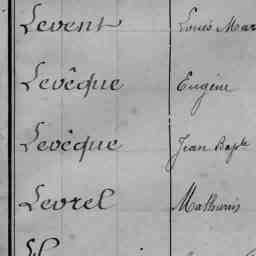 Levent Louis Mar
Levêque Eugène
Levêque Jean Bapte
Levrel Mathurin